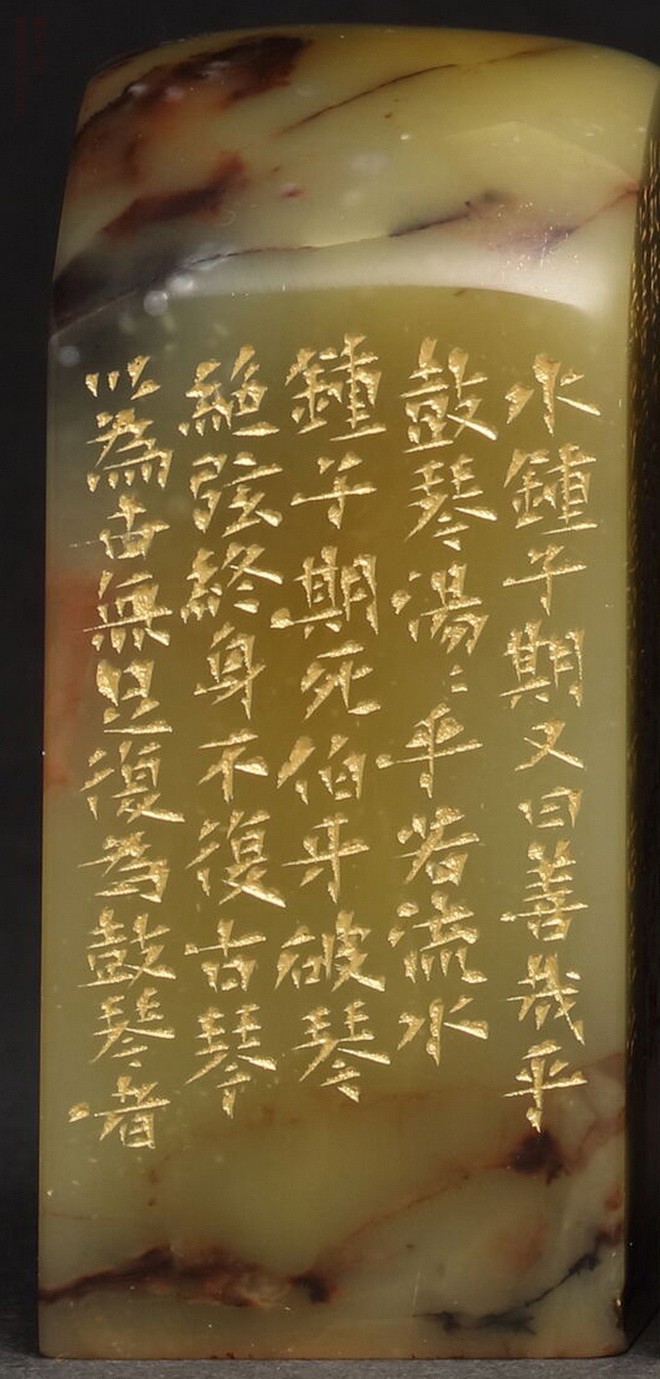 水鍾子期又曰善哉乎
鼓琴湯〻乎若流水
鍾子期死伯牙破琴
絕弦終身不復古琴
以為世無足復為鼓琴者